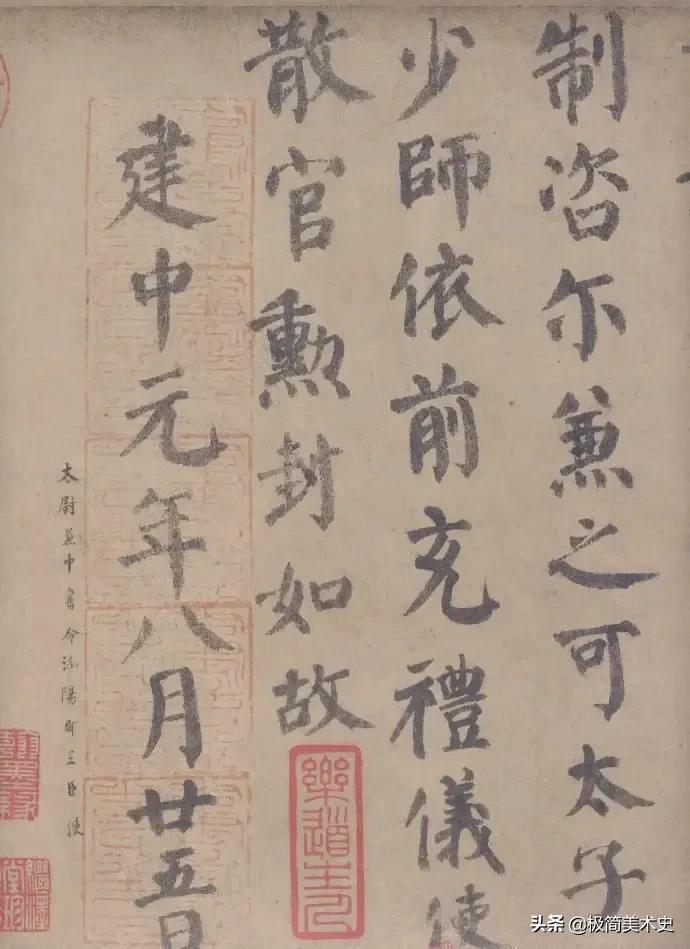 制咨尔兼之可太子
少師依前充禮儀使
散官勲封如故
樂道主人
建中元年八月廿五日
太尉兼中書令汾陽郡王臣使
头条 @极简美术史